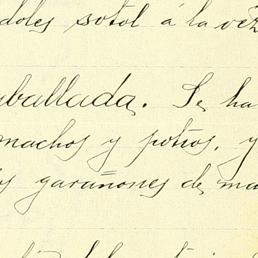 doles sotol á la vez
aballada. Se ha
machos y potros, y
garañones de ma